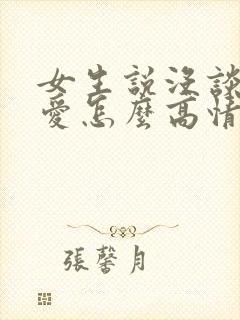 女生説沒談
愛怎麼高情
張馨月